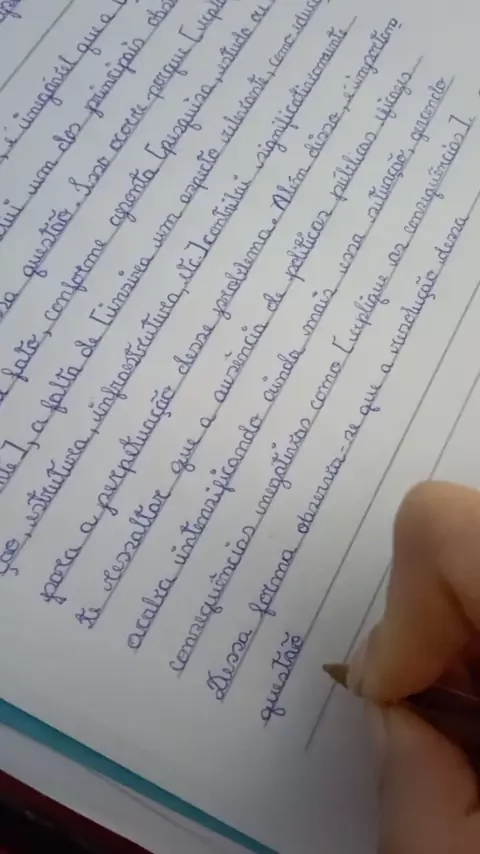 , é inegável que a
um dos principais
questão. Isso ocorre porque [expli
fato, conforme aponta [pesquisa, estudo ou
], a falta de [insira um aspecto relevante, como educa
ção, estrutura, infraestrutura, etc.] contribui significativamente
para a perpetuação desse problema. Além disso, é importan
te ressaltar que a ausência de políticas públicas
acaba intensificando ainda mais essa situação, gerando
consequências negativas como [explique as consequências].
Dessa forma observa-se que a resolução dessa
questão